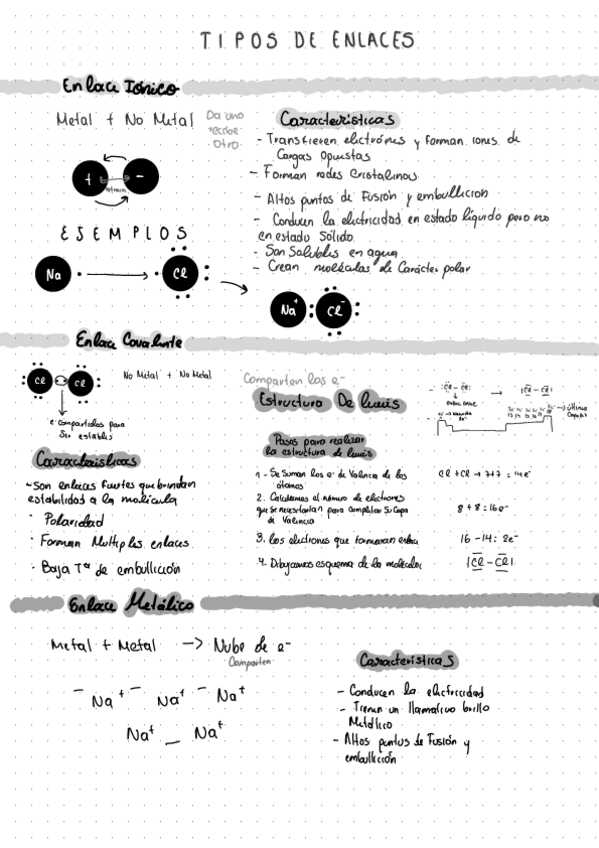 TIPOS DE ENLACES
Enlace Iónico
Metal + No Metal
Da uno
recibe
Otro.
+ -
EJEMPLOS
Na Cl
Características
- Transfieren electrónes y Forman iones de
Cargas Opuestas
- Forman redes Cristalinas
- Altos puntos de Fusión y embullicion
- Conducen la electricidad en estado líquido pero no
en estado sólido
- Son Solubles en agua
- Crean moléculas de Carácter polar
Na+ Cl-
Enlace Covalente
Cl Cl
No Metal + No Metal
e- Compartidos para
Ser estables
Características
- Son enlaces fuertes que brindan
estabilidad a la molícula
· Polaridad
· Forman Multiples enlaces
· Baja Tª de embullición
Comparten los e-
Estructura De lewis
Pasos para realizar
la estructura de lewis
1 - Se Suman los e- de Valencia de los
átomos
Cl + Cl → 7+7 = 14e-
2. Calculamos el número de electrones
que se necesitarían para completar Su Capa
de Valencia
8 + 8 = 16e-
3. los electrones que formaran enlace
16 - 14: 2e-
4. Dibujamos esquema de la molécula
|Cl - Cl|
Enlace Metálico
Metal + Metal -> Nube de e-
Comparten
- Na+ - Na+ - Na+
Na+ - Na+
Características
- Conducen la electricidad
- Tienen un llamativo brillo
Metálico
- Altos puntos de Fusión y
embullición